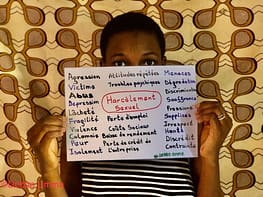 Agression Attitudes répétées Menaces
Victime Troubles psychiques Dégradation
Abus Discrimination
Dépression Harcèlement Souffrance
Lâcheté Sexuel Pression
Fragilité Perte d'emploi Supplices
Violence Coûts Sociaux Irrespect
Calomnie Baisse de rendement Honte
Peur Perte de crédit de Discrédit
Isolement l'entreprise Contrainte